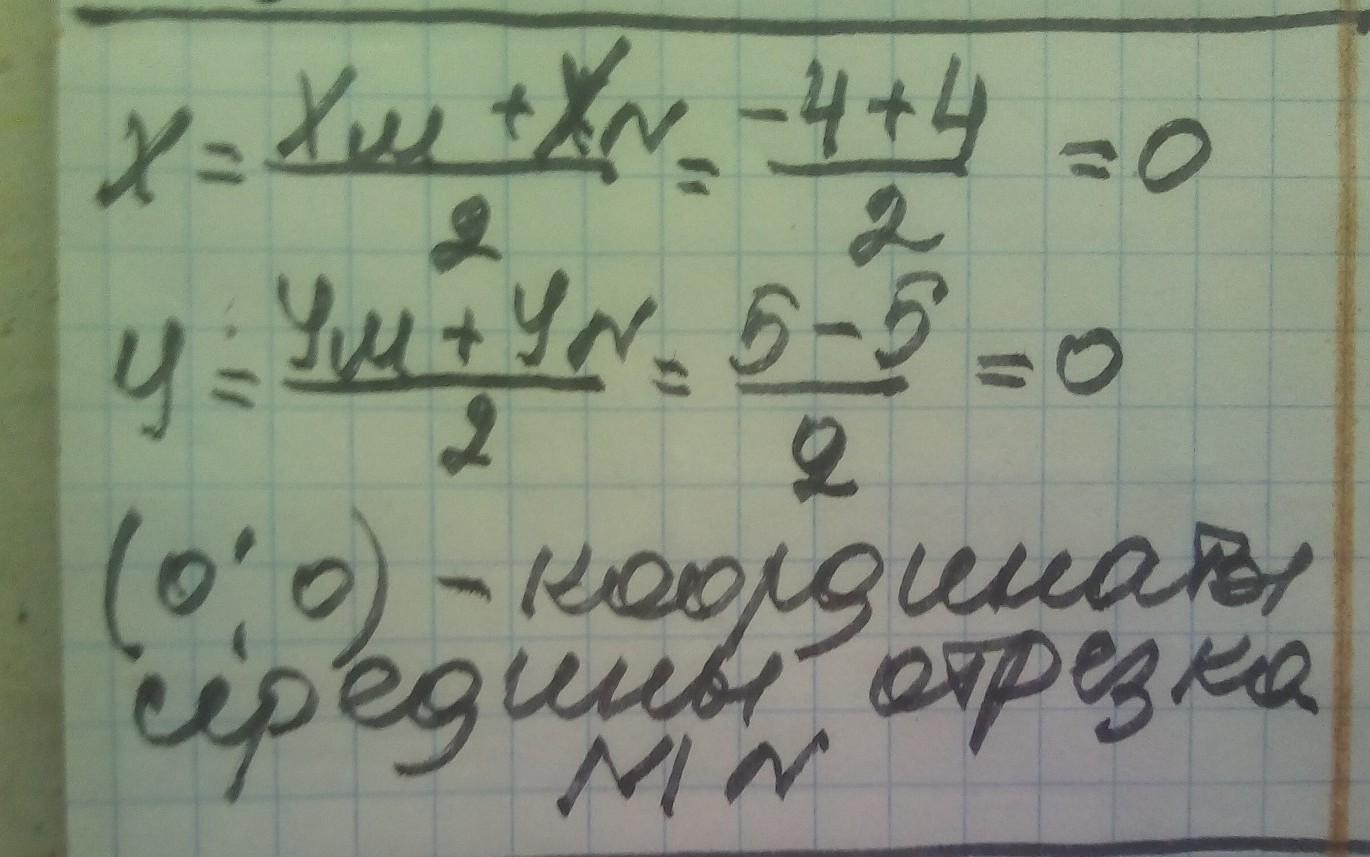 x = (xм + xN)/2 = (-4 + 4)/2 = 0
y = (yм + yN)/2 = (5 - 5)/2 = 0
(0; 0) - координаты
середины отрезка
MN